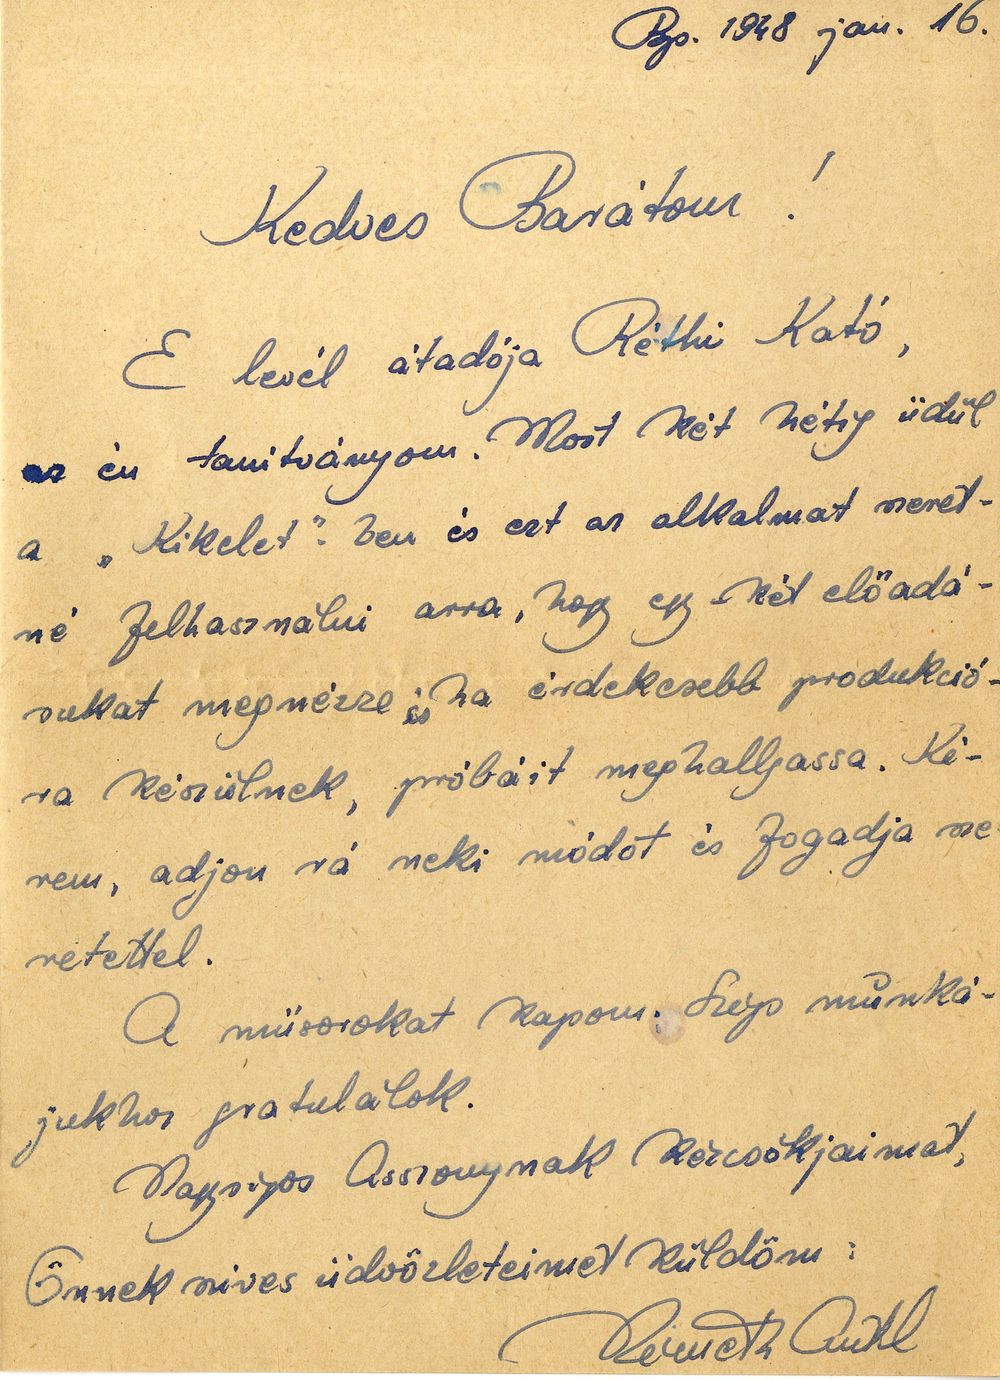 Bp. 1948 jan. 16.
Kedves Barátom !
E levél átadója Réthi Kató,
az én tanítványom. Most két hétig üdül
a „Kikelet"-ben és ezt az alkalmat szeret-
né felhasználni arra, hogy egy-két előadá-
sukat megnézze és ha érdekesebb produkció-
ra készülnek, próbáit meghallgassa. Ké-
rem, adjon rá neki módot és fogadja sze-
retettel.
A műsorokat kapom. Szép munká-
jukhoz gratulálok.
Nagysigos Asszonynak kézcsókjaimat,
Önnek szives üdvözleteimet küldöm :
Németh